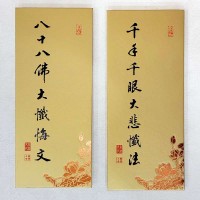 八十八佛大懺悔文
千手千眼大悲懺法